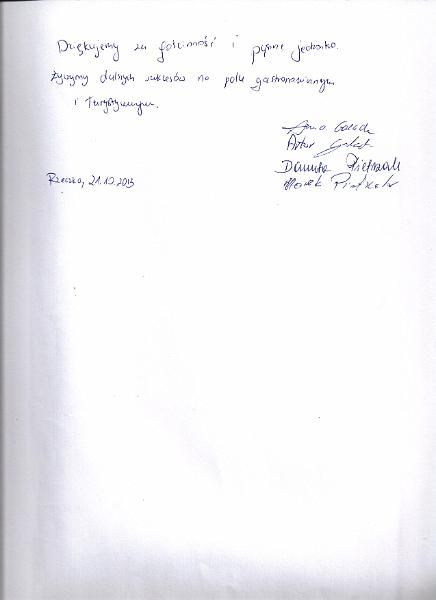 Dziękujemy za gościnność i pyszne jedzonko.
Życzymy dalszych sukcesów na polu gastronomicznym
i turystycznym.
Artur
Danuta Pietrzak
Marek
Rzeczka, 21.10.2013